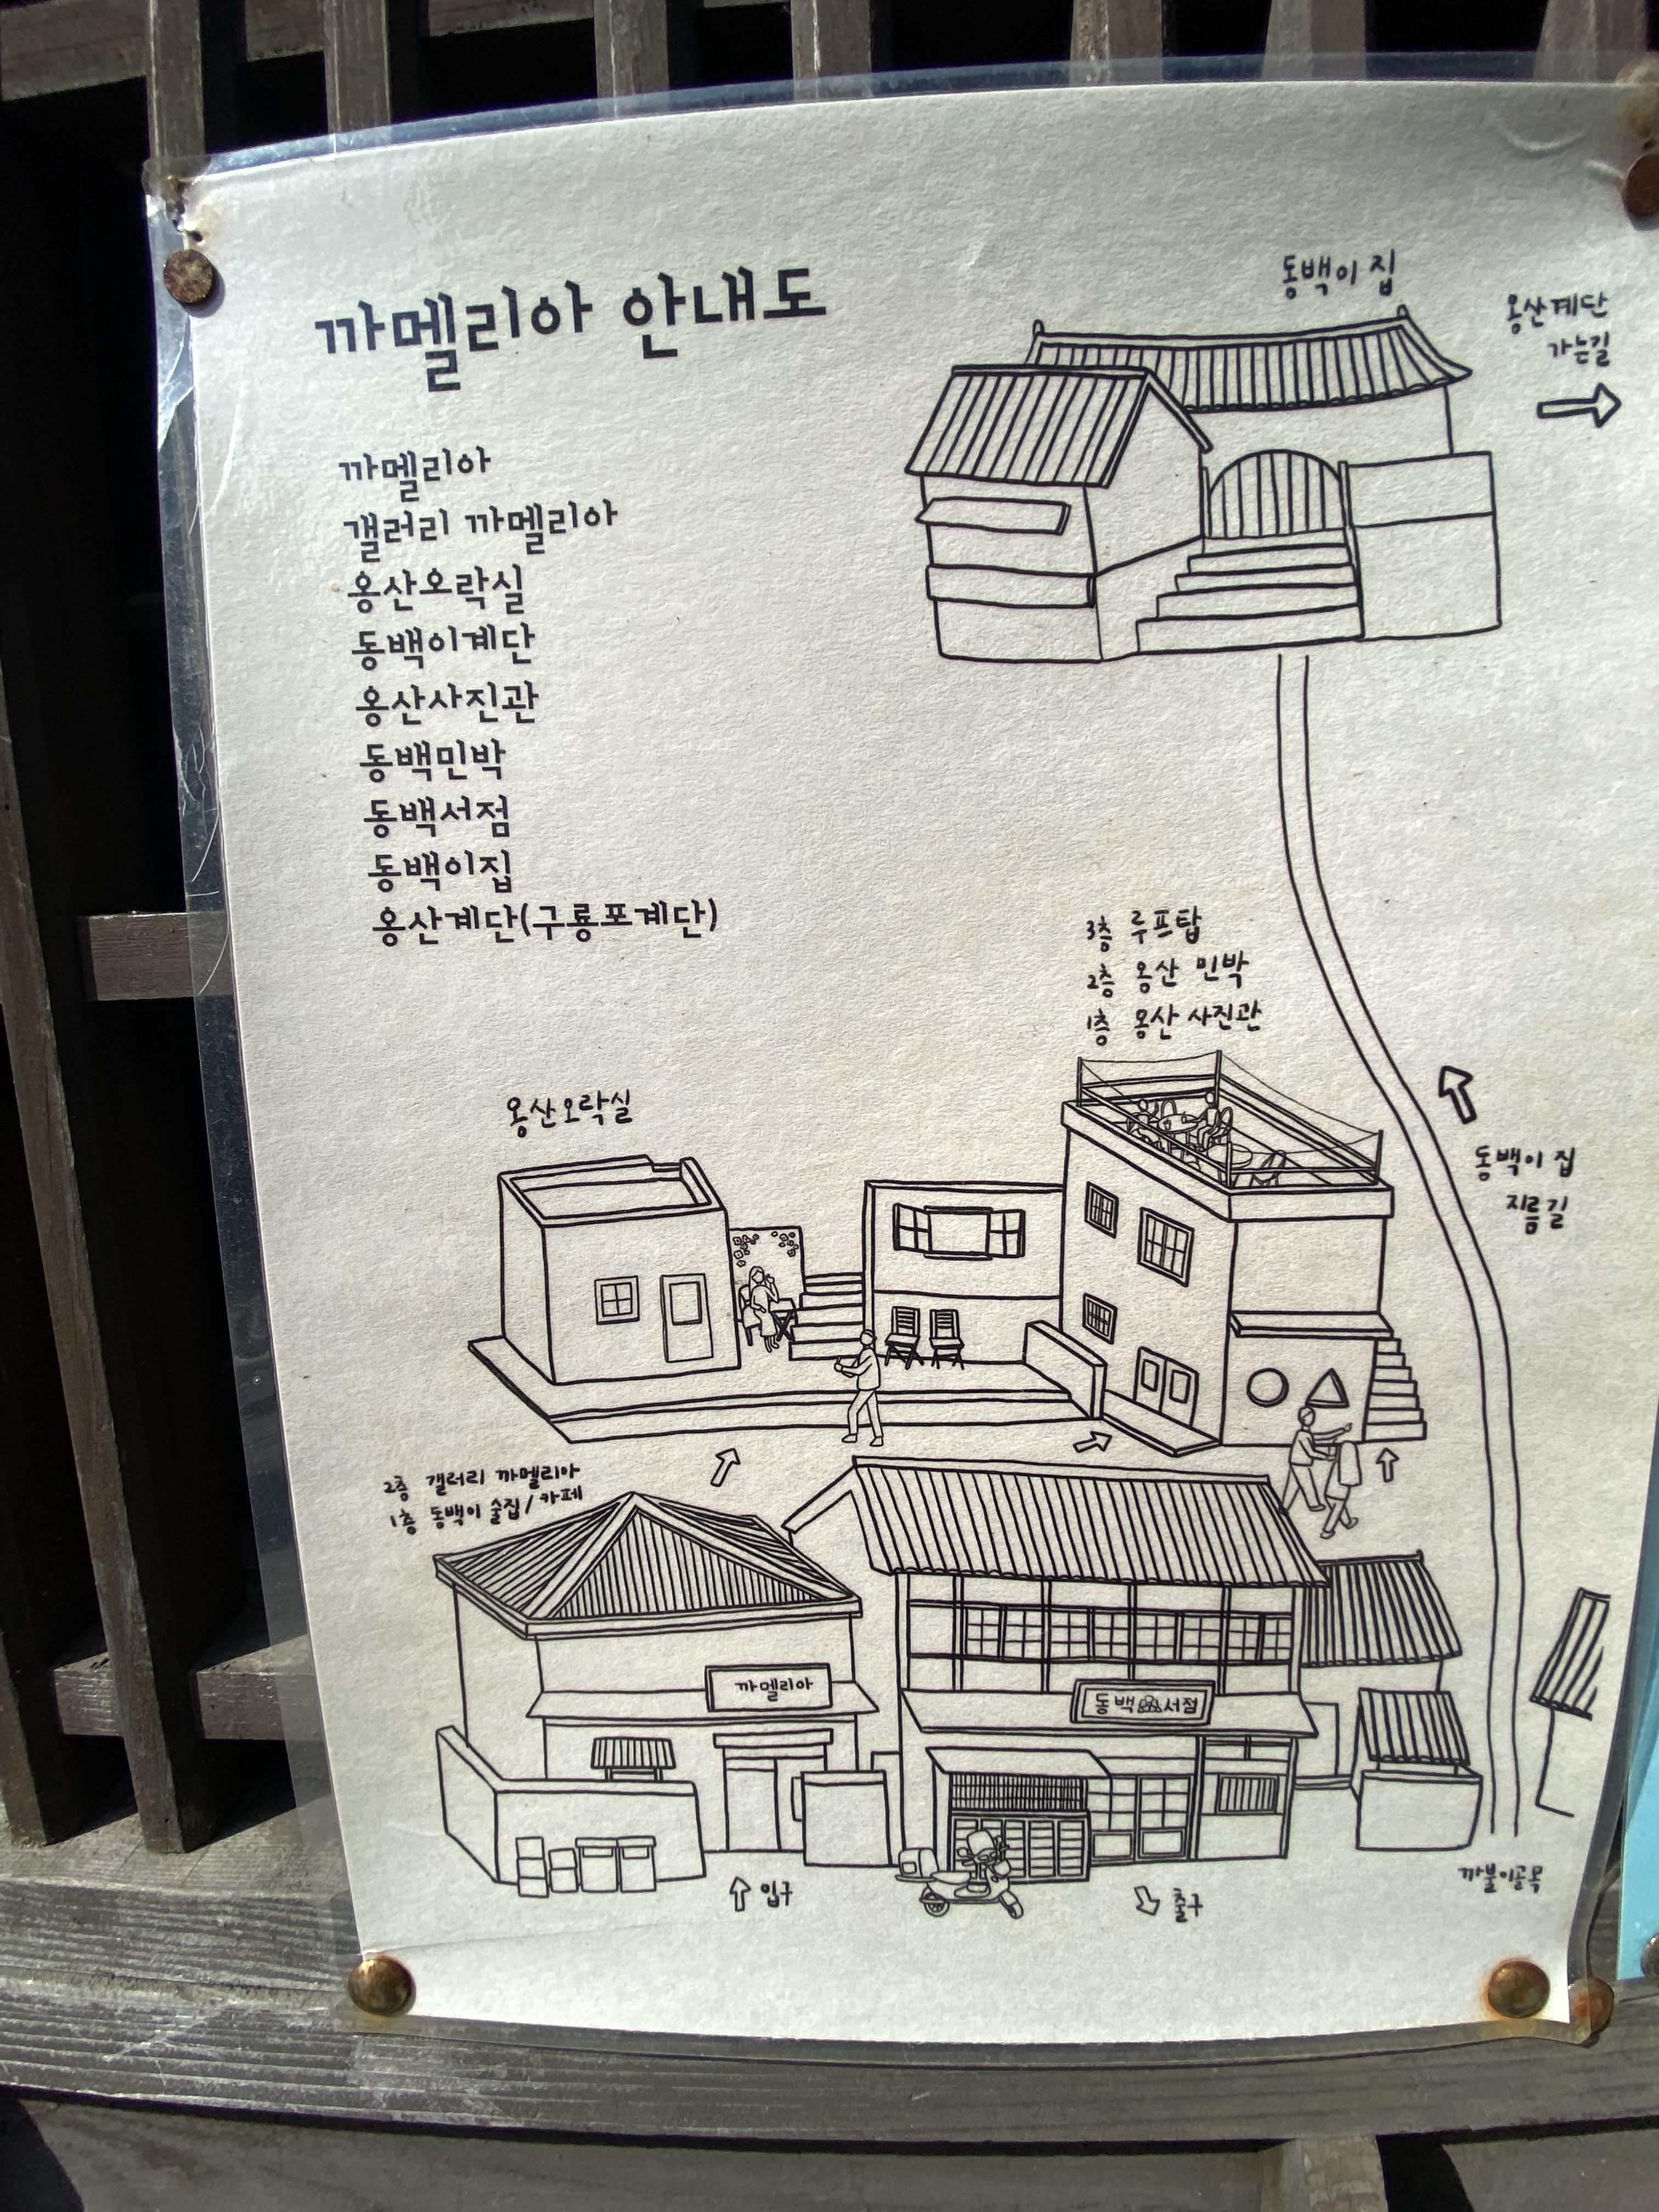 까멜리아 안내도
까멜리아
갤러리 까멜리아
옹산오락실
동백이계단
옹산사진관
동백민박
동백서점
동백이집
옹산계단(구룡포계단)
동백이 집
옹산계단
가는길
3층 루프탑
2층 옹산 민박
1층 옹산 사진관
옹산오락실
동백이 집
지름길
2층 갤러리 까멜리아
1층 동백이 술집/카페
까멜리아
동백서점
입구
출구
까불이골목